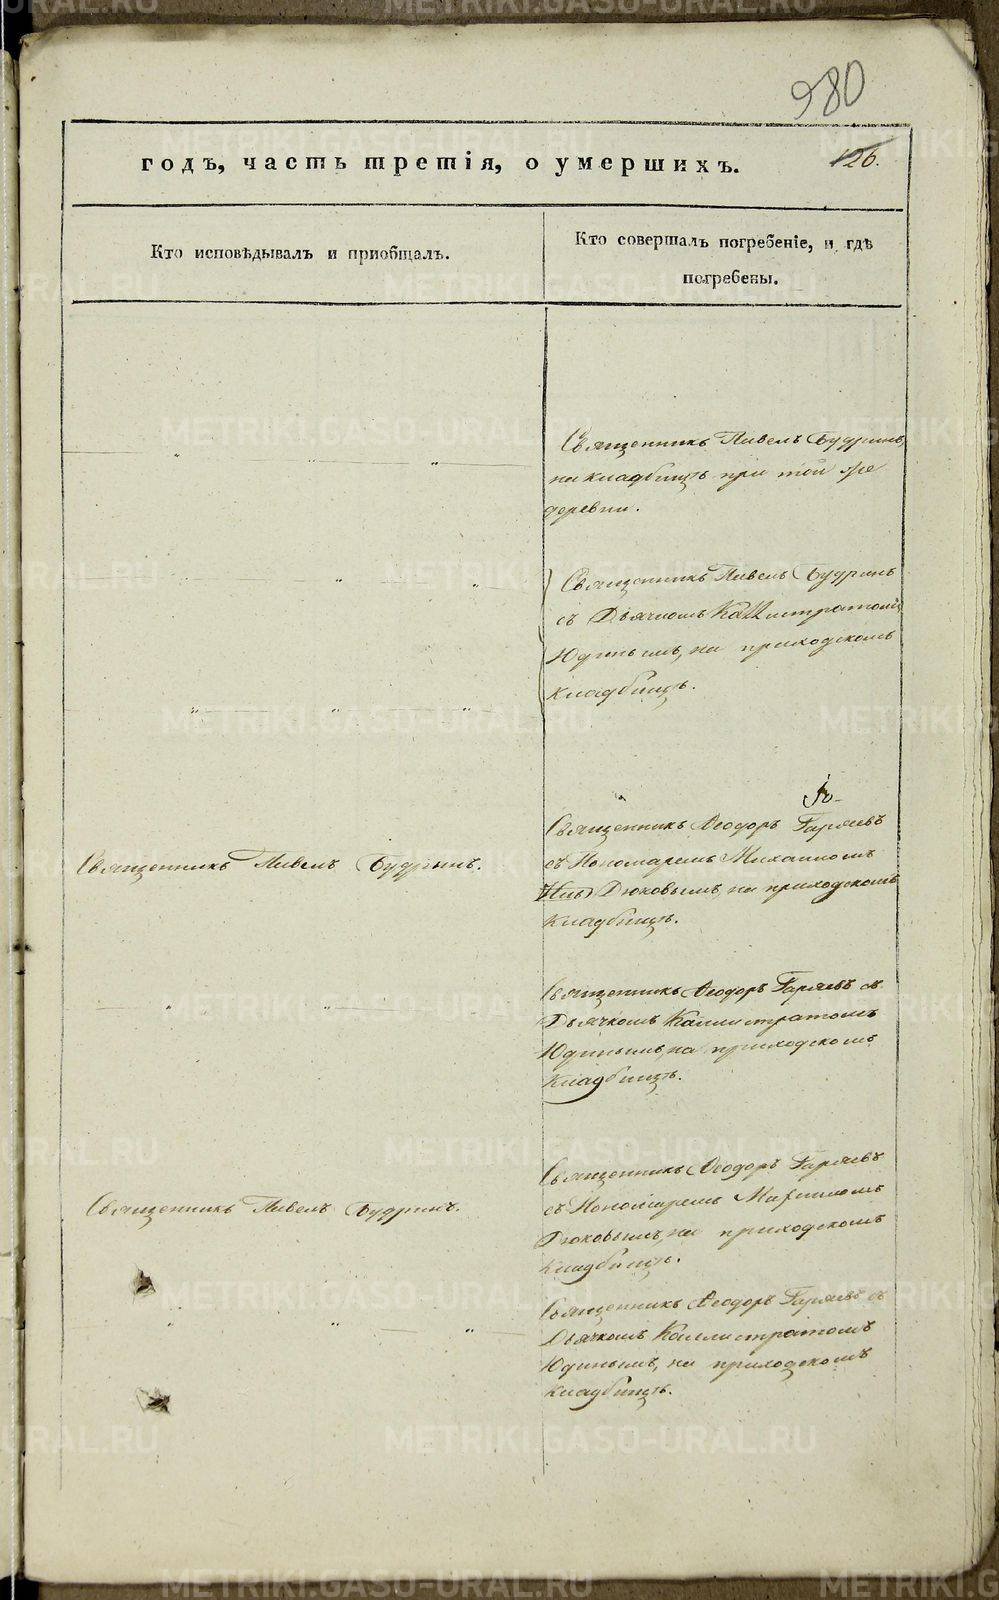 980
126.
годъ, часть третія, о умершихъ.
Кто исповѣдывалъ и приобщалъ.
Кто совершалъ погребеніе, и гдѣ
погребены.
Священникъ Павелъ Будринъ,
на кладбищѣ при той же
деревни.
Священникъ Павелъ Будринъ
съ Дьячкомъ Каллистратомъ
Юдинымъ, на приходскомъ
кладбищѣ.
Священникъ Павелъ Будринъ.
Священникъ Ѳеодоръ Гаряевъ
съ Пономаремъ Михаиломъ
Дюковымъ, на приходскомъ
кладбищѣ.
Священникъ Ѳеодоръ Гаряевъ съ
Дьячкомъ Каллистратомъ
Юдинымъ, на приходскомъ
кладбищѣ.
Священникъ Павелъ Будринъ.
Священникъ Ѳеодоръ Гаряевъ
съ Пономаремъ Михаиломъ
Дюковымъ, на приходскомъ
кладбищѣ.
Священникъ Ѳеодоръ Гаряевъ съ
Дьячкомъ Каллистратомъ
Юдинымъ, на приходскомъ
кладбищѣ.
METRIKI.GASO-URAL.RU